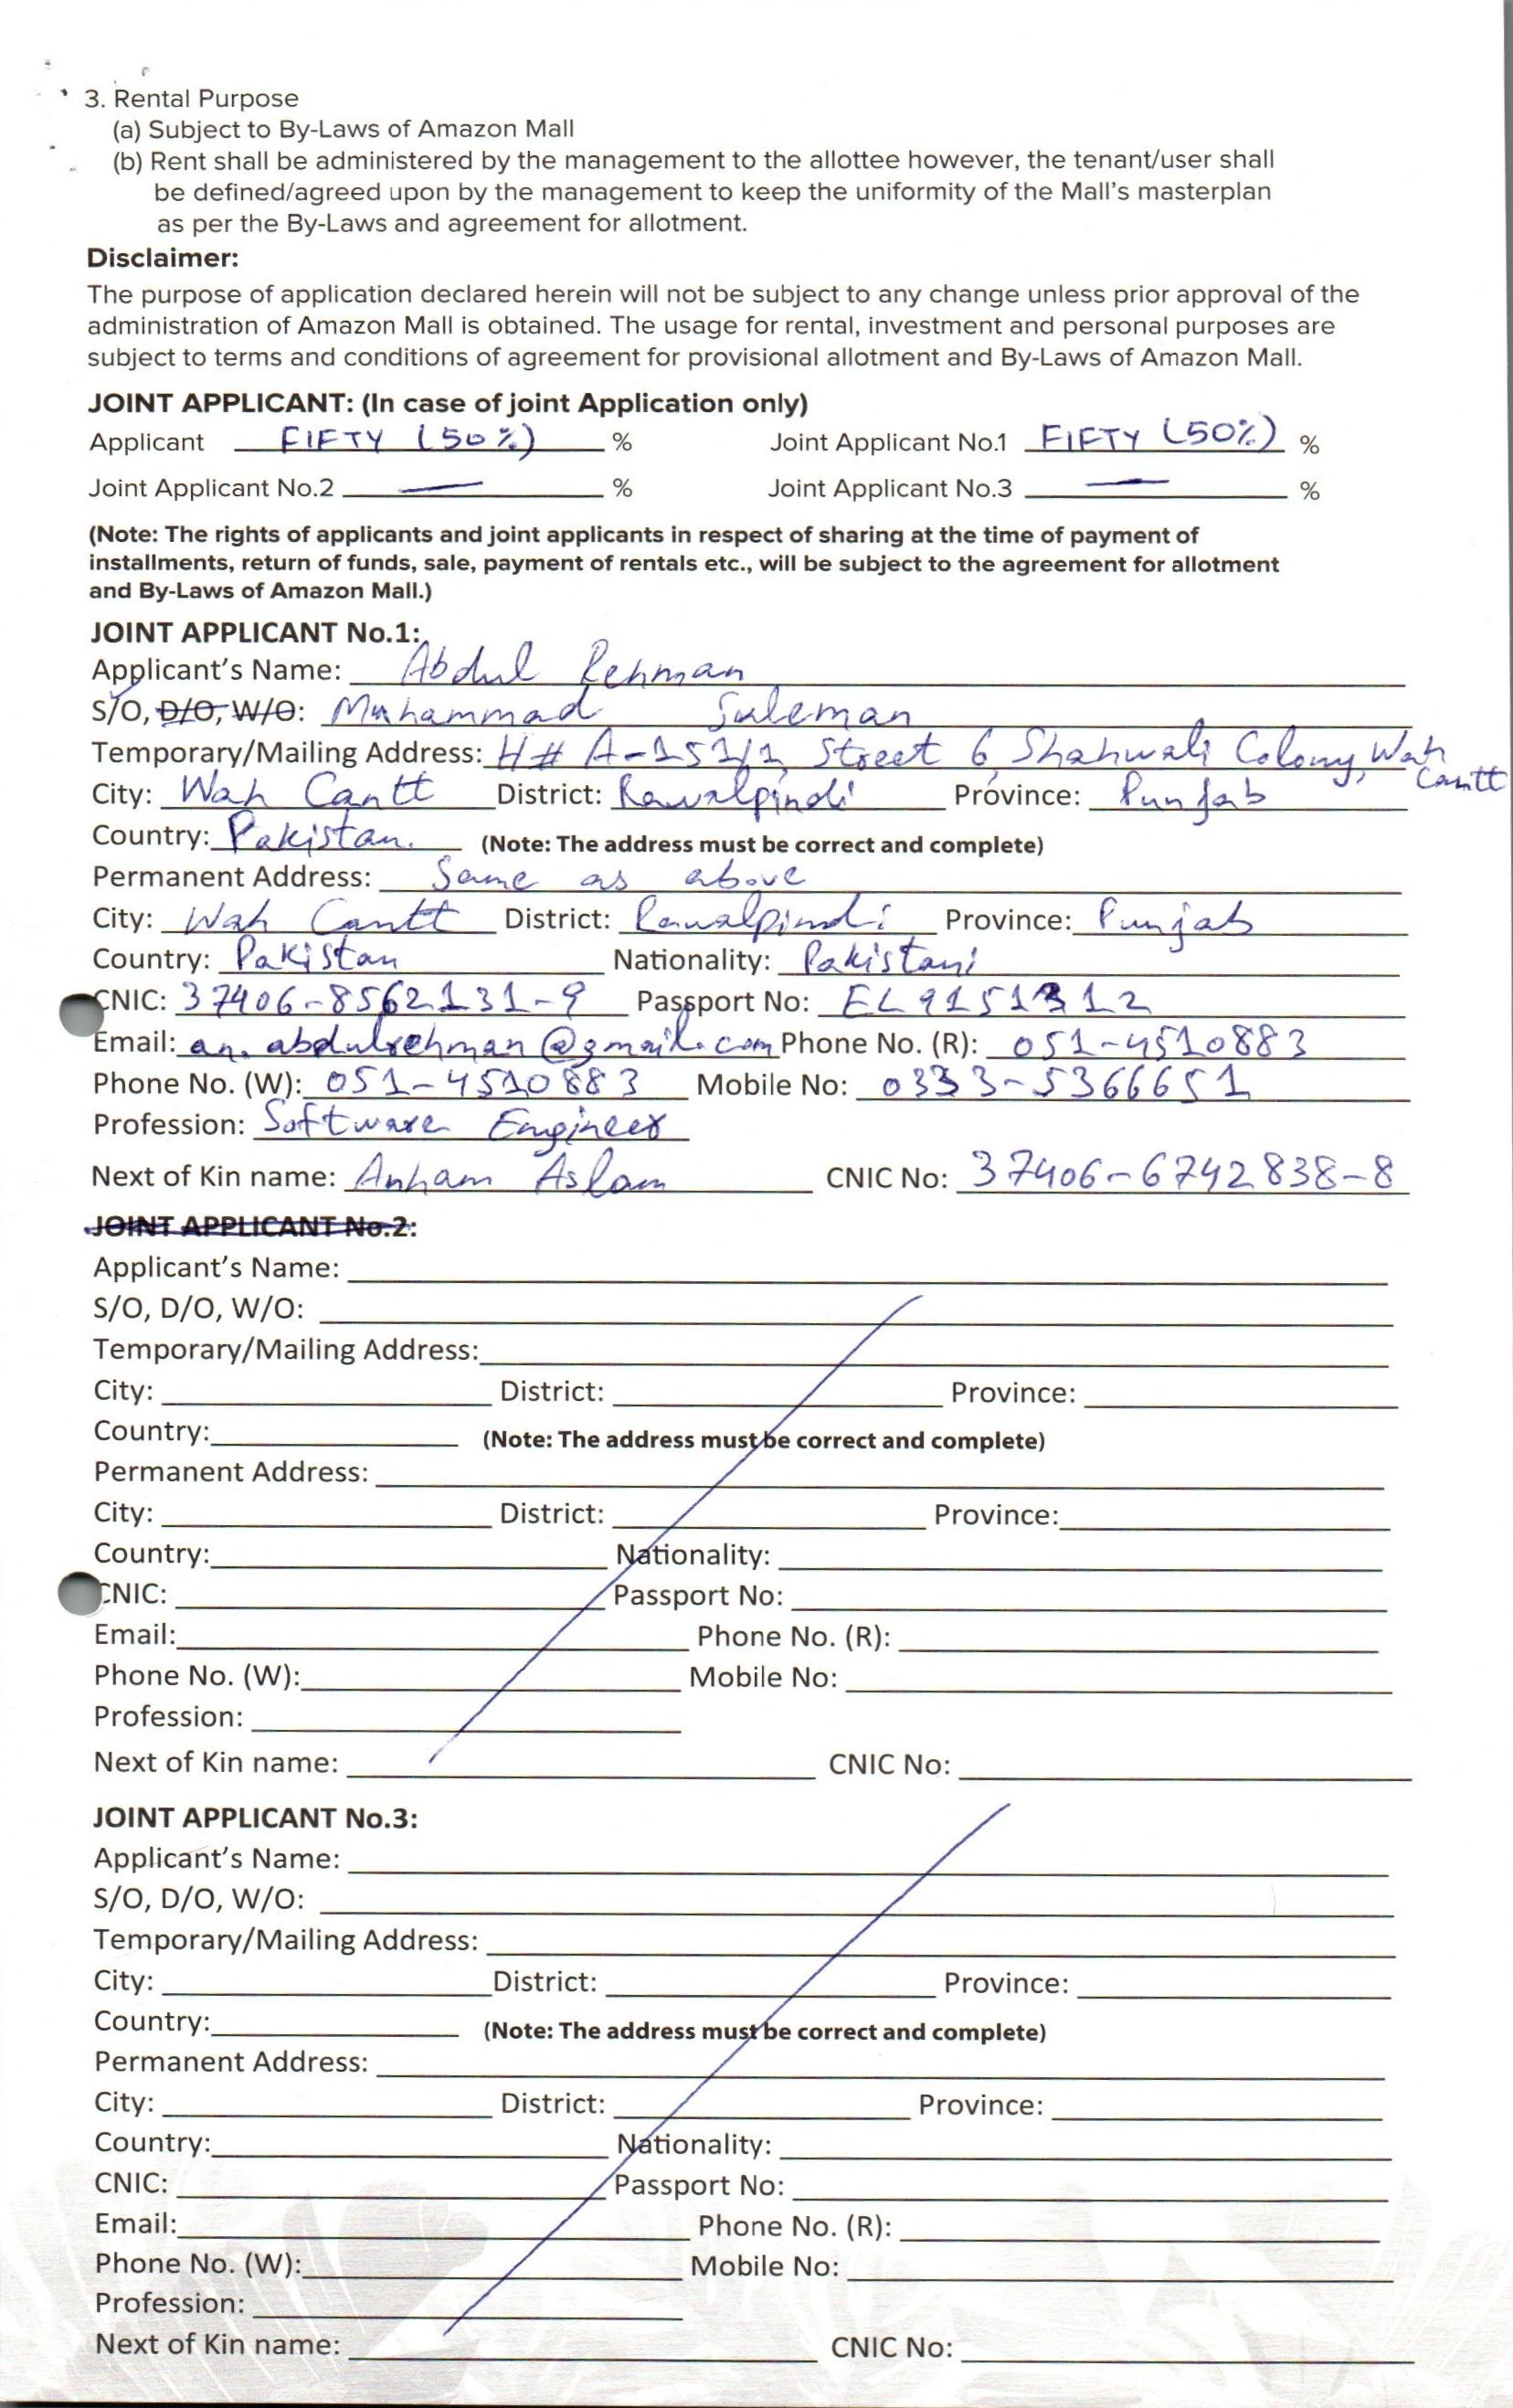 3. Rental Purpose
(a) Subject to By-Laws of Amazon Mall
(b) Rent shall be administered by the management to the allottee however, the tenant/user shall
be defined/agreed upon by the management to keep the uniformity of the Mall's masterplan
as per the By-Laws and agreement for allotment.
Disclaimer:
The purpose of application declared herein will not be subject to any change unless prior approval of the
administration of Amazon Mall is obtained. The usage for rental, investment and personal purposes are
subject to terms and conditions of agreement for provisional allotment and By-Laws of Amazon Mall.
JOINT APPLICANT: (In case of joint Application only)
Applicant FIFTY (50%) % Joint Applicant No.1 FIFTY (50%) %
Joint Applicant No.2 — % Joint Applicant No.3 — %
(Note: The rights of applicants and joint applicants in respect of sharing at the time of payment of
installments, return of funds, sale, payment of rentals etc., will be subject to the agreement for allotment
and By-Laws of Amazon Mall.)
JOINT APPLICANT No.1:
Applicant's Name: Abdul Rehman
S/O, D/O, W/O: Muhammad Suleman
Temporary/Mailing Address: H# A-151/1, Street 6, Shahwali Colony, Wah Cantt
City: Wah Cantt District: Rawalpindi Province: Punjab
Country: Pakistan. (Note: The address must be correct and complete)
Permanent Address: Same as above
City: Wah Cantt District: Rawalpindi Province: Punjab
Country: Pakistan Nationality: Pakistani
CNIC: 37406-8562131-9 Passport No: EL9151312
Email: an.abdulrehman@gmail.com Phone No. (R): 051-4510883
Phone No. (W): 051-4510883 Mobile No: 0333-5366651
Profession: Software Engineer
Next of Kin name: Anham Aslam CNIC No: 37406-6742838-8
JOINT APPLICANT No.2:
Applicant's Name:
S/O, D/O, W/O:
Temporary/Mailing Address:
City: District: Province:
Country: (Note: The address must be correct and complete)
Permanent Address:
City: District: Province:
Country: Nationality:
CNIC: Passport No:
Email: Phone No. (R):
Phone No. (W): Mobile No:
Profession:
Next of Kin name: CNIC No:
JOINT APPLICANT No.3:
Applicant's Name:
S/O, D/O, W/O:
Temporary/Mailing Address:
City: District: Province:
Country: (Note: The address must be correct and complete)
Permanent Address:
City: District: Province:
Country: Nationality:
CNIC: Passport No:
Email: Phone No. (R):
Phone No. (W): Mobile No:
Profession:
Next of Kin name: CNIC No: